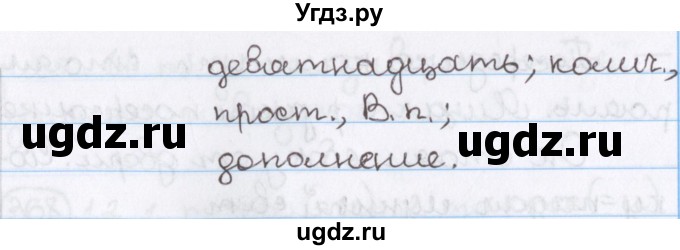 Угдз.ру
девятнадцать; колич.,
прост., В.п.;
дополнение.
ugdz.ru
ugdz.ru
ugdz.ru
ugdz.ru